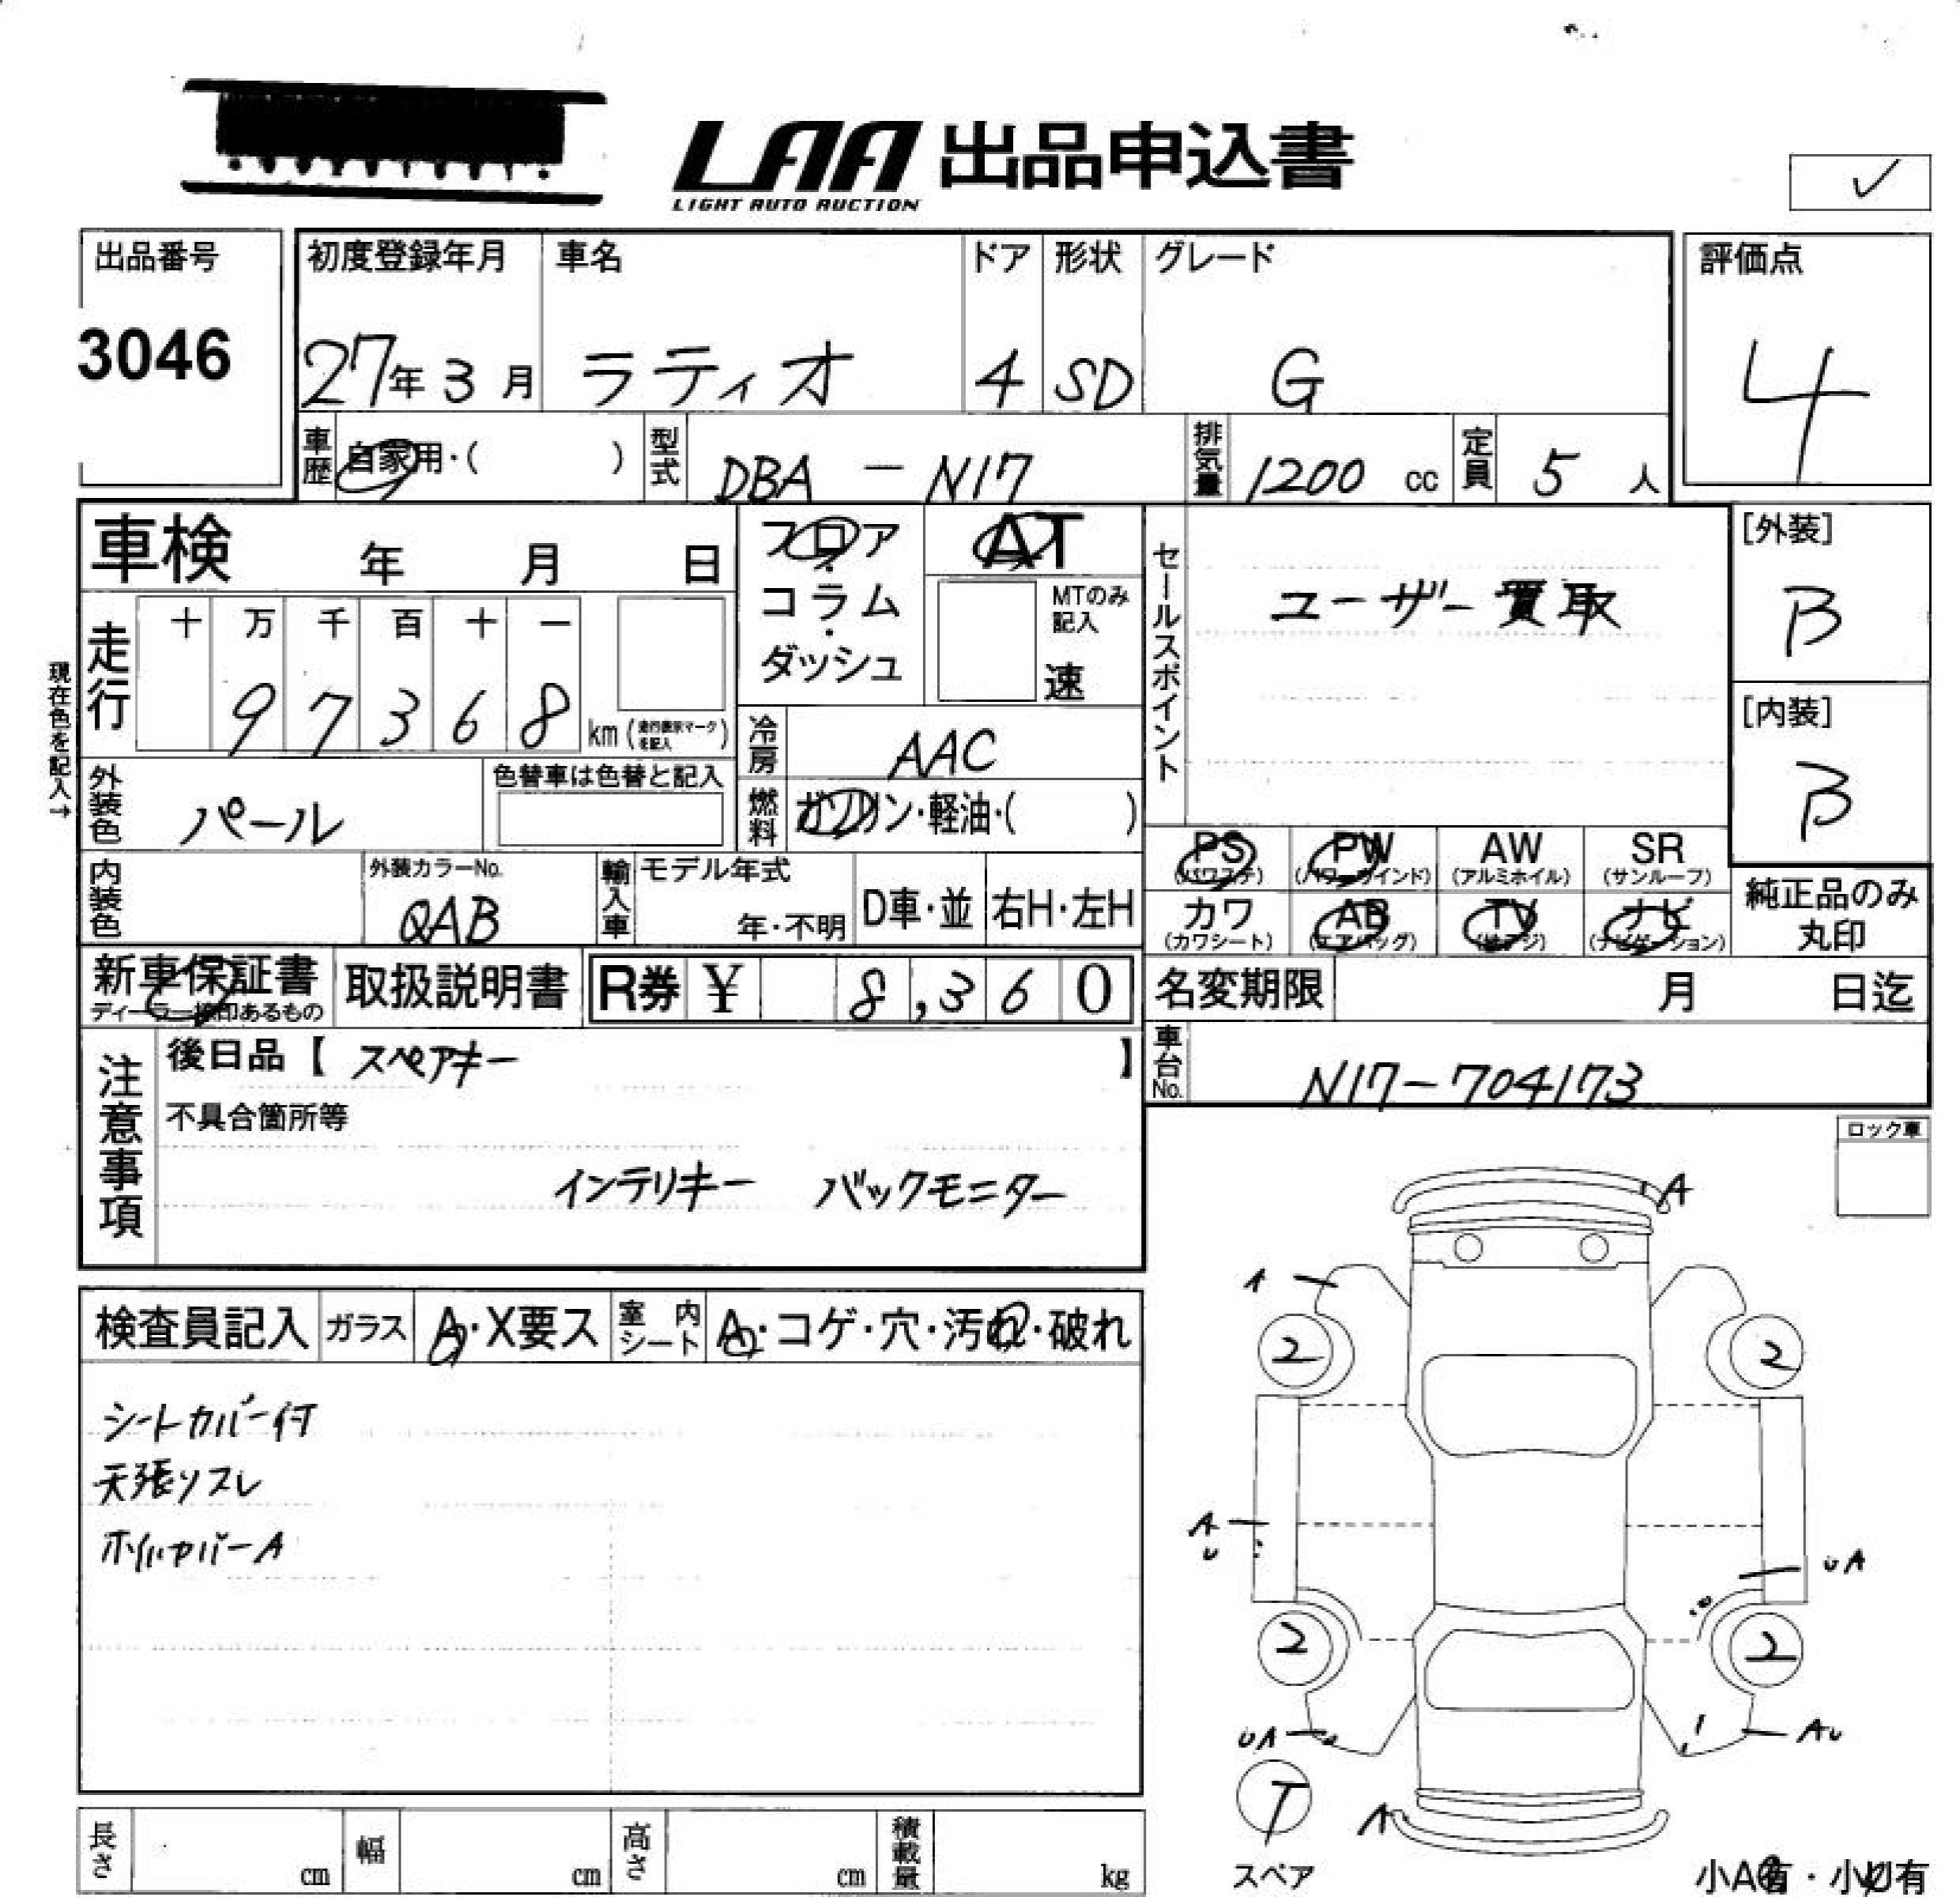 LAA 出品申込書
LIGHT AUTO AUCTION
出品番号
3046
初度登録年月 車名 ドア 形状 グレード 評価点
27年 3月 ラティオ 4 SD G 4
車歴 自家用・( ) 型式 DBA - N17 排気量 1200 cc 定員 5 人
車検 年 月 日 フロア・コラム・ダッシュ AT
MTのみ記入 速
セールスポイント ユーザー買取
[外装] B
[内装] B
現在色を記入→
走行 十 万 千 百 十 一
9 7 3 6 8 km (走行表示マークを記入)
冷房 AAC
燃料 ガソリン・軽油・( )
外装色 パール 色替車は色替と記入
内装色 外装カラーNo. QAB 輸入車 モデル年式 年・不明 D車・並 右H・左H
PS (パワステ) PW (パワーウインド) AW (アルミホイル) SR (サンルーフ)
カワ (カワシート) AB (エアバッグ) TV (地デジ) ナビ (ナビゲーション) 純正品のみ丸印
新車保証書 ディーラー捺印あるもの 取扱説明書 R券 ¥ 8,360
名変期限 月 日迄
車台No. N17-704173
注意事項 後日品【 スペアキー 】
不具合箇所等
インテリキー バックモニター
ロック車
検査員記入 ガラス A・X要ス 室内シート A・コゲ・穴・汚れ・破れ
シートカバー付
天張リスレ
ホイルカバーA
A
A
2 2
A
U
UA
2 2
UA AU
T
A
スペア
小A有・小U有
長さ cm 幅 cm 高さ cm 積載量 kg